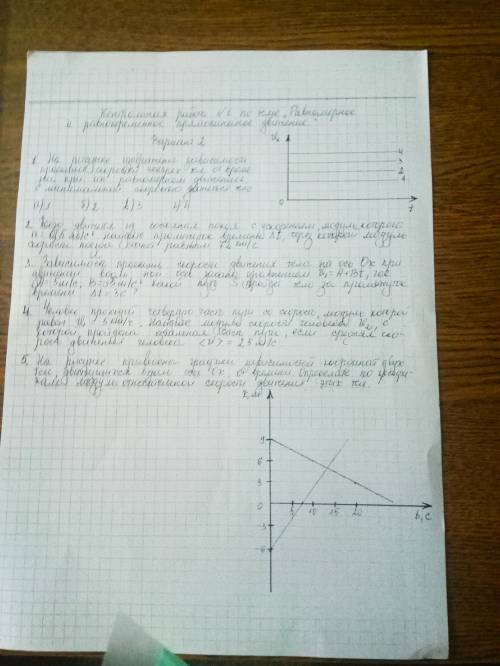 Контрольная работа №1 по теме „Равномерное
и равнопеременное прямолинейное движение"
Вариант 2
1. На рисунке изображены зависимости
проекций скоростей четырех тел от време
ни при их равномерном движении.
С минимальной скоростью движется тело
а) 1 б) 2 в) 3 г) 4
Vx
4
3
2
1
0
t
2. Когда двигаясь из состояния покоя с ускорением, модуль которого
a = 0,6 м/с² найдите промежуток времени Δt, через который модуль
скорости
3. Зависимость проекции скорости движения тела на ось Ох при
движении вдоль этой оси задана уравнением Vx = A + Bt, где
какой путь S пройдёт тело за промежуток
времени Δt = 3c?
4. Человек, прошёл четвертую часть пути со скорость, модуль которой
равен найдите модуль скорости человека V2, с
которой, пройдена остальная часть пути, если средняя ско-
рость движения человека <V> = 2,5 м/с
5. На рисунке приведены графики зависимостей координат двух
тел, движущихся вдоль оси Ох от времени. Определите по графи-
модуль относительной скорости движения этих тел.
x, м
9
6
3
0
5 10 15 20
t, c
-3
-6